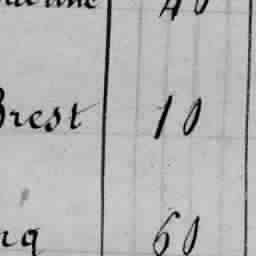 40
Brest 10
60